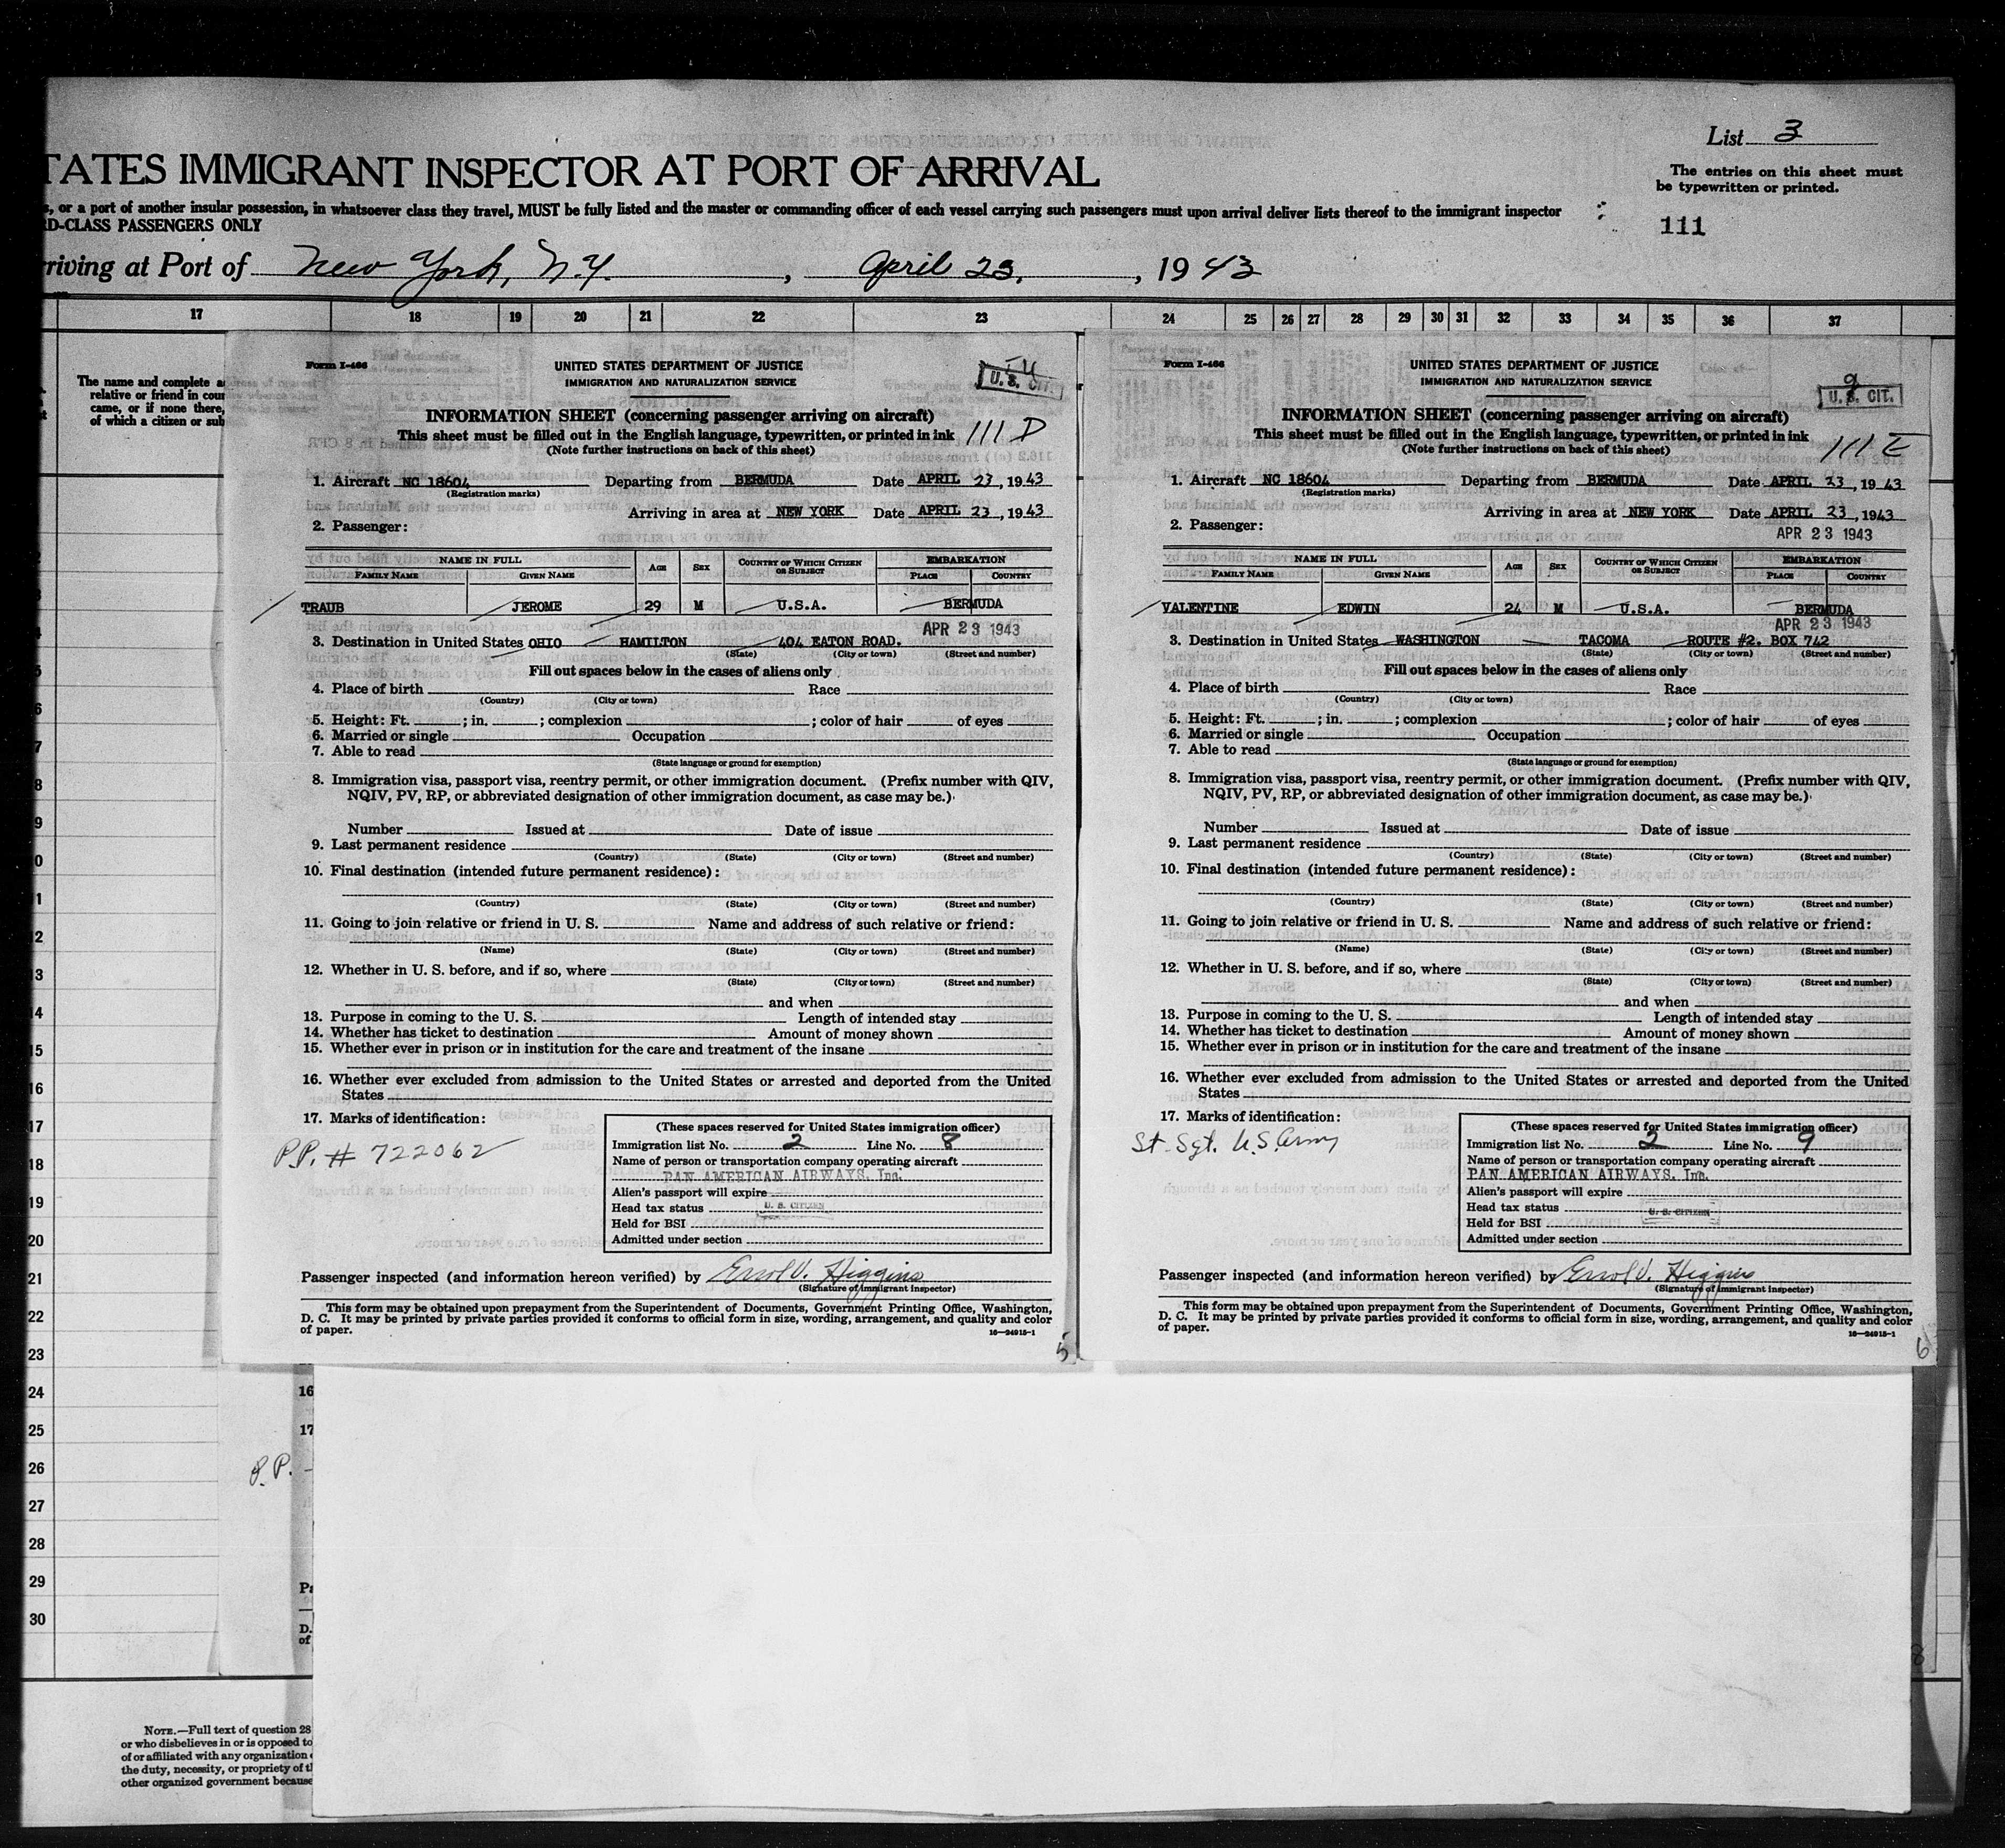 List 3
TATES IMMIGRANT INSPECTOR AT PORT OF ARRIVAL
The entries on this sheet must
be typewritten or printed.
s, or a port of another insular possession, in whatsoever class they travel, MUST be fully listed and the master or commanding officer of each vessel carrying such passengers must upon arrival deliver lists thereof to the immigrant inspector
RD-CLASS PASSENGERS ONLY
111
riving at Port of New York, N.Y., April 23, 1943
17 18 19 20 21 22 23 24 25 26 27 28 29 30 31 32 33 34 35 36 37
The name and complete a
relative or friend in cour
came, or if none there,
of which a citizen or sub
Form I-466
UNITED STATES DEPARTMENT OF JUSTICE
IMMIGRATION AND NATURALIZATION SERVICE
U.S. CIT.
INFORMATION SHEET (concerning passenger arriving on aircraft)
This sheet must be filled out in the English language, typewritten, or printed in ink
111 D
(Note further instructions on back of this sheet)
1. Aircraft NC 18604 Departing from BERMUDA Date APRIL 23, 1943
(Registration marks)
Arriving in area at NEW YORK Date APRIL 23, 1943
2. Passenger:
NAME IN FULL AGE SEX COUNTRY OF WHICH CITIZEN OR SUBJECT EMBARKATION
FAMILY NAME GIVEN NAME PLACE COUNTRY
TRAUB JEROME 29 M U.S.A. BERMUDA
APR 23 1943
3. Destination in United States OHIO HAMILTON 404 EATON ROAD.
(State) (City or town) (Street and number)
Fill out spaces below in the cases of aliens only
4. Place of birth Race
(Country) (City or town)
5. Height: Ft. ; in. ; complexion ; color of hair of eyes
6. Married or single Occupation
7. Able to read
(State language or ground for exemption)
8. Immigration visa, passport visa, reentry permit, or other immigration document. (Prefix number with QIV,
NQIV, PV, RP, or abbreviated designation of other immigration document, as case may be.)
Number Issued at Date of issue
9. Last permanent residence
(Country) (State) (City or town) (Street and number)
10. Final destination (intended future permanent residence):
(Country) (State) (City or town) (Street and number)
11. Going to join relative or friend in U. S. Name and address of such relative or friend:
(Name) (State) (City or town) (Street and number)
12. Whether in U. S. before, and if so, where
(State) (City or town) (Street and number)
and when
13. Purpose in coming to the U. S. Length of intended stay
14. Whether has ticket to destination Amount of money shown
15. Whether ever in prison or in institution for the care and treatment of the insane
16. Whether ever excluded from admission to the United States or arrested and deported from the United
States
17. Marks of identification:
P.P. # 722062
(These spaces reserved for United States immigration officer)
Immigration list No. 2 Line No. 8
Name of person or transportation company operating aircraft
PAN AMERICAN AIRWAYS, Inc.
Alien's passport will expire
Head tax status U. S. CITIZEN
Held for BSI
Admitted under section
Passenger inspected (and information hereon verified) by Errol V. Higgins
(Signature of immigrant inspector)
This form may be obtained upon prepayment from the Superintendent of Documents, Government Printing Office, Washington,
D. C. It may be printed by private parties provided it conforms to official form in size, wording, arrangement, and quality and color
of paper.
16—24915-1
5
Form I-466
UNITED STATES DEPARTMENT OF JUSTICE
IMMIGRATION AND NATURALIZATION SERVICE
9
U.S. CIT.
INFORMATION SHEET (concerning passenger arriving on aircraft)
This sheet must be filled out in the English language, typewritten, or printed in ink
111 E
(Note further instructions on back of this sheet)
1. Aircraft NC 18604 Departing from BERMUDA Date APRIL 23, 1943
(Registration marks)
Arriving in area at NEW YORK Date APRIL 23, 1943
2. Passenger:
APR 23 1943
NAME IN FULL AGE SEX COUNTRY OF WHICH CITIZEN OR SUBJECT EMBARKATION
FAMILY NAME GIVEN NAME PLACE COUNTRY
VALENTINE EDWIN 24 M U.S.A. BERMUDA
APR 23 1943
3. Destination in United States WASHINGTON TACOMA ROUTE #2. BOX 742
(State) (City or town) (Street and number)
Fill out spaces below in the cases of aliens only
4. Place of birth Race
(Country) (City or town)
5. Height: Ft. ; in. ; complexion ; color of hair of eyes
6. Married or single Occupation
7. Able to read
(State language or ground for exemption)
8. Immigration visa, passport visa, reentry permit, or other immigration document. (Prefix number with QIV,
NQIV, PV, RP, or abbreviated designation of other immigration document, as case may be.)
Number Issued at Date of issue
9. Last permanent residence
(Country) (State) (City or town) (Street and number)
10. Final destination (intended future permanent residence):
(Country) (State) (City or town) (Street and number)
11. Going to join relative or friend in U. S. Name and address of such relative or friend:
(Name) (State) (City or town) (Street and number)
12. Whether in U. S. before, and if so, where
(State) (City or town) (Street and number)
and when
13. Purpose in coming to the U. S. Length of intended stay
14. Whether has ticket to destination Amount of money shown
15. Whether ever in prison or in institution for the care and treatment of the insane
16. Whether ever excluded from admission to the United States or arrested and deported from the United
States
17. Marks of identification:
St. Sgt. U.S. Army
(These spaces reserved for United States immigration officer)
Immigration list No. 2 Line No. 9
Name of person or transportation company operating aircraft
PAN AMERICAN AIRWAYS, Inc.
Alien's passport will expire
Head tax status U. S. CITIZEN
Held for BSI
Admitted under section
Passenger inspected (and information hereon verified) by Errol V. Higgins
(Signature of immigrant inspector)
This form may be obtained upon prepayment from the Superintendent of Documents, Government Printing Office, Washington,
D. C. It may be printed by private parties provided it conforms to official form in size, wording, arrangement, and quality and color
of paper.
16—24915-1
6
16
17
P.P.
D.
of
23
24
25
26
27
28
29
30
NOTE.—Full text of question 28
or who disbelieves in or is opposed to
of or affiliated with any organization
the duty, necessity, or propriety of
other organized government because